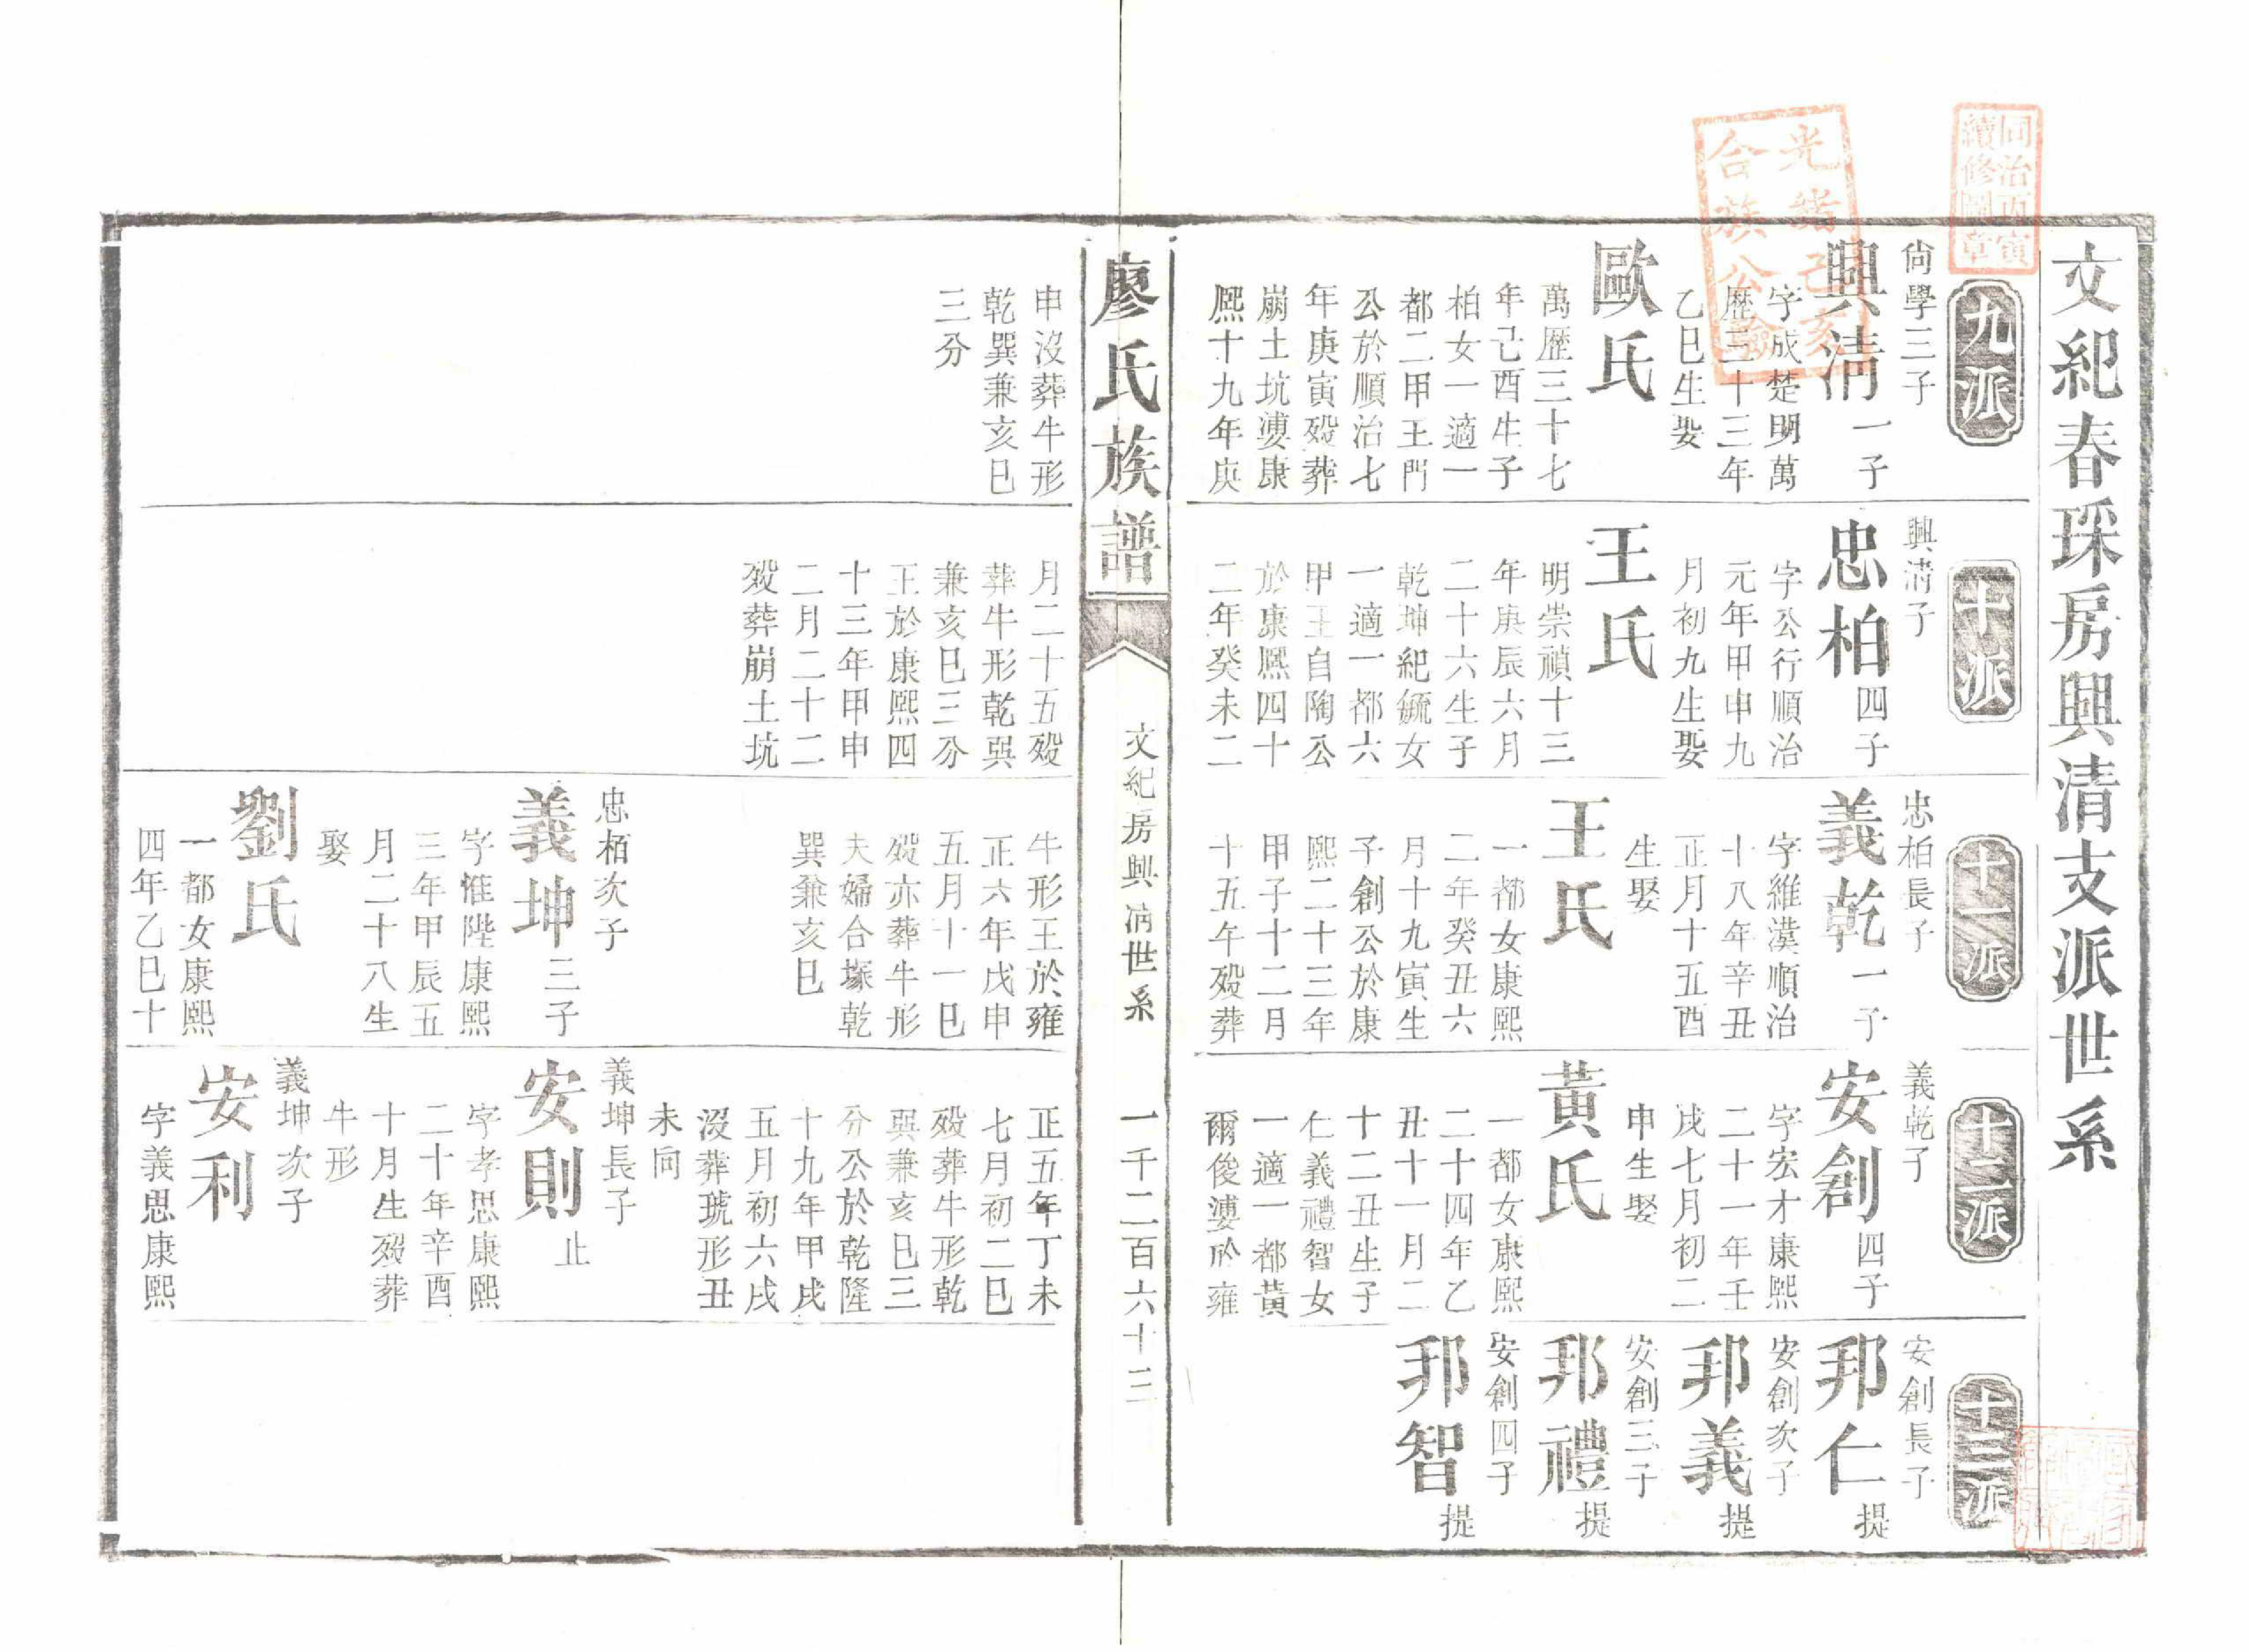 文紀春琛房興清支派世系
九派
尙學三子
興清
一子
字成楚明萬
歷三十三年
乙巳生娶
歐氏
萬歷三十七
年己酉生子
柏女一適一
都二甲王門
公於順治七
年庚寅殁葬
崩土坑漊康
熈十九年庚
申沒葬牛形
乾巽兼亥巳
三分
十派
興清子
忠柏
四子
字公行順治
元年甲申九
月初九生娶
王氏
明崇禎十三
年庚辰六月
二十六生子
乾坤紀毓女
一適一都六
甲王自陶公
於康熈四十
二年癸未二
月二十五殁
葬牛形乾巽
兼亥巳三分
王於康熙四
十三年甲申
二月二十二
殁葬崩土坑
十一派
忠柏長子
義乾
一子
字維漢順治
十八年辛丑
正月十五酉
生娶
王氏
一都女康熙
二年癸丑六
月十九寅生
子創公於康
熙二十三年
甲子十二月
十五午殁葬
牛形王於雍
正六年戊申
五月十一巳
殁亦葬牛形
夫婦合塚乾
巽兼亥巳
忠栢次子
義坤
三子
字惟陛康熙
三年甲辰五
月二十八生
娶
劉氏
一都女康熙
四年乙巳十
十二派
義乾子
安創
四子
字宏才康熙
二十一年壬
戌七月初二
申生娶
黃氏
一都女康熙
二十四年乙
丑十一月二
十二丑生子
仁義禮智女
一適一都黃
爾俊漊於雍
正五年丁未
七月初二巳
殁葬牛形乾
巽兼亥巳三
分公於乾隆
十九年甲戌
五月初六戌
沒葬琥形丑
未向
義坤長子
安則
止
字孝思康熙
二十年辛酉
十月生殁葬
牛形
義坤次子
安利
字義思康熙
十三派
安創長子
邦仁
提
安創次子
邦義
提
安創三子
邦禮
提
安創四子
邦智
提
廖氏族譜
文紀房興清世系
一千二百六十三
同治丙寅
續修圖章
光緒己亥
合族公驗